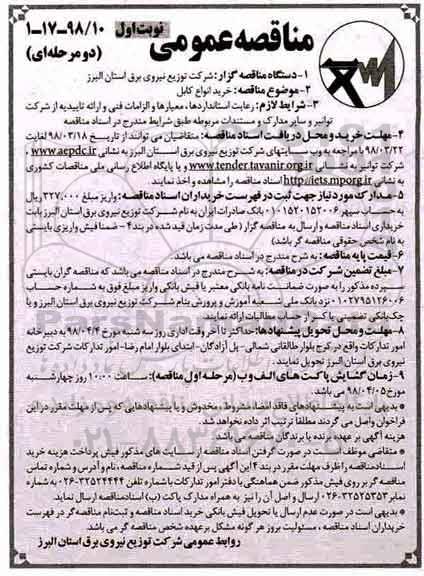 مناقصه عمومی
نوبت اول
۹۸/۱۰-۱۷-۱
(دو مرحله‌ای)
۱- دستگاه مناقصه گزار: شرکت توزیع نیروی برق استان البرز
۲- موضوع مناقصه: خرید انواع کابل
۳- شرایط لازم: رعایت استانداردها، معیارها و الزامات فنی و ارائه تاییدیه از شرکت
توانیر و سایر مدارک و مستندات مربوطه طبق شرایط مندرج در اسناد مناقصه
۴- مهلت خرید و محل دریافت اسناد مناقصه: متقاضیان می توانند از تاریخ ۹۸/۰۳/۱۸ لغایت
۹۸/۰۳/۲۲ با مراجعه به وب سایتهای شرکت توزیع نیروی برق استان البرز به نشانی www.aepdc.ir ،
شرکت توانیر به نشانی www.tender.tavanir.org.ir و یا پایگاه اطلاع رسانی ملی مناقصات کشوری
به نشانی http://iets.mporg.ir اسناد مناقصه را مشاهده و اخذ نمایند
۵- مدارک مورد نیاز جهت ثبت در فهرست خریداران اسناد مناقصه: واریز مبلغ ۳۲۷,۰۰۰ ریال
به حساب سپهر ۰۱۰۱۵۲۰۱۵۲۰۰۶ بانک صادرات ایران به نام شرکت توزیع نیروی برق استان البرز بابت
خریداری اسناد مناقصه و ارسال به مناقصه گزار (طی مدت زمان قید شده در بند ۴ - ضمنا فیش واریزی بایستی
به نام شخص حقوقی مناقصه گر باشد)
۶- قیمت پایه مناقصه: به شرح مندرج در اسناد مناقصه می باشد.
۷- مبلغ تضمین شرکت در مناقصه: به شرح مندرج در اسناد مناقصه می باشد که مناقصه گران بایستی
سپرده مذکور را به صورت ضمانت نامه بانکی معتبر یا فیش بانکی واریز مبلغ فوق به شماره حساب
۱۰۲۷۹۵۱۲۶۰۰۶ نزد بانک ملی شعبه آموزش و پرورش بنام شرکت توزیع نیروی برق استان البرز و یا
چک بانکی تضمینی یا کسر از حساب مطالبات ارائه نمایند.
۸- مهلت و محل تحویل پیشنهادها: حداکثر تا آخر وقت اداری روز سه شنبه مورخ ۹۸/۰۴/۴ به دبیرخانه
امور تدارکات واقع در کرج بلوار طالقانی شمالی- پل آزادگان- ابتدای بلوار امام رضا- امور تدارکات شرکت توزیع
نیروی برق استان البرز تحویل نمایند.
۹- زمان گشایش پاکت های الف و ب (مرحله اول مناقصه): ساعت ۱۰:۰۰ روز چهارشنبه
مورخ ۹۸/۰۴/۰۵ می باشد.
* بدیهی است به پیشنهادهای فاقد امضا، مشروط، مخدوش و یا پیشنهادهایی که پس از مهلت مقرر در این
فراخوان واصل می گردند مطلقا ترتیب اثر داده نخواهد شد.
هزینه آگهی بر عهده برنده یا برندگان مناقصه می باشد.
* متقاضی موظف است در صورت گرفتن اسناد مناقصه از سایت های مذکور فیش پرداخت هزینه خرید
اسناد مناقصه را ظرف مهلت مقرر در بند ۴ این آگهی پس از قید شماره مناقصه، نام و آدرس و شماره تماس
مناقصه گر بر روی فیش مذکور ضمن هماهنگی با دفتر امور تدارکات با شماره تلفن ۳۲۵۲۴۴۴۴-۰۲۶ به شماره
نمابر ۳۲۵۲۵۳۵۳-۰۲۶ ارسال و اصل آن را نیز به همراه مدارک پاکت (ب) اسناد مناقصه ارسال نماید.
* بدیهی است در صورت عدم ارسال یا تحویل فیش بانکی خرید اسناد مناقصه و ثبت نام مناقصه گر در فهرست
خریداران اسناد مناقصه ، مسئولیت بروز هر گونه مشکل بر عهده شخص مناقصه گر می باشد.
روابط عمومی شرکت توزیع نیروی برق استان البرز